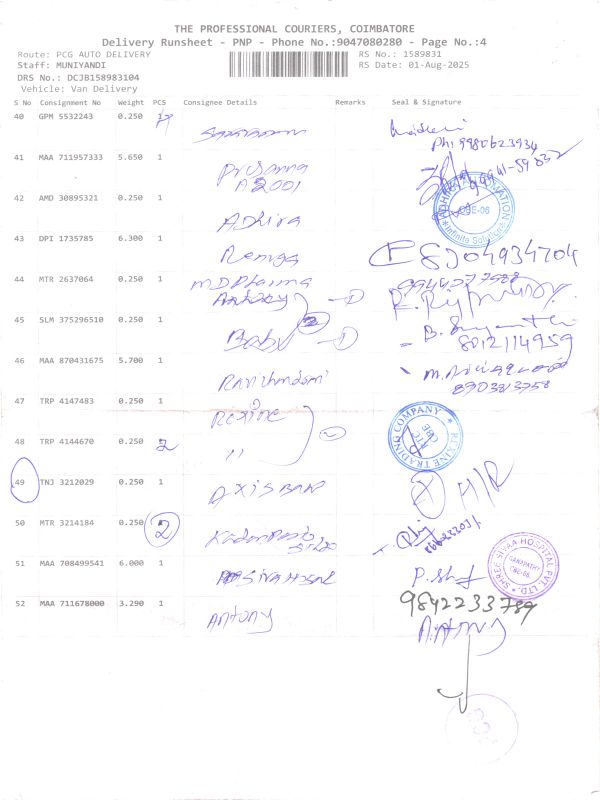 THE PROFESSIONAL COURIERS, COIMBATORE
Delivery Runsheet - PNP - Phone No.:9047080280 - Page No.:4
Route: PCG AUTO DELIVERY RS No.: 1589831
Staff: MUNIYANDI RS Date: 01-Aug-2025
DRS No.: DCJB158983104
Vehicle: Van Delivery
S No Consignment No Weight PCS Consignee Details Remarks Seal & Signature
40 GPM 5532243 0.250
Ph: 9980623934
41 MAA 711957333 5.650 1 Prasanna
A 2001
42 AMD 30895321 0.250 1 Adhira
CBE-06
Infinite Solutions
43 DPI 1735785 6.300 1 Remya
8504934704
44 MTR 2637064 0.250 1 MD Pharma
9944077988
Antony
45 SLM 375296510 0.250 1 Baby 2
8012114959
46 MAA 870431675 5.700 1
8903813758
47 TRP 4147483 0.250 1 Rexine
REXINE TRADING COMPANY
CBE
48 TRP 4144670 0.250 2 "
49 TNJ 3212029 0.250 1 AXIS BANK
50 MTR 3214184 0.250 2
51 MAA 708499541 6.000 1 SIVA HOSPAL
SHREE SIVAA HOSPITAL PVT. LTD.
GANAPATHY
CBE-06
52 MAA 711678000 3.290 1 ANTONY
9842233789
A. Antony